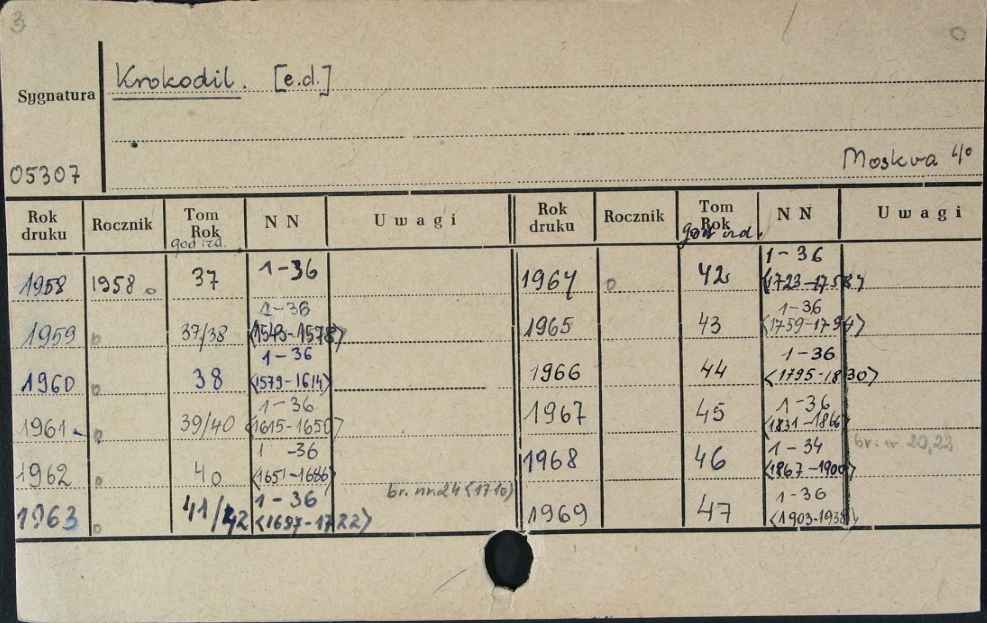 3
Krokodil. [e.d.]
Sygnatura
05307
Moskva 4°
Rok druku Rocznik Tom Rok god izd. NN Uwagi Rok druku Rocznik Tom Rok god izd. NN Uwagi
1958 1958 37 1-36 1964 42 1-36 <1723-1758>
1959 37/38 1-36 <1543-1578> 1965 43 1-36 <1759-1794>
1960 38 1-36 <1579-1614> 1966 44 1-36 <1795-1830>
1961 39/40 1-36 <1615-1650> 1967 45 1-36 <1831-1866>
1962 40 1-36 <1651-1686> 1968 46 1-34 <1867-1900> br. nr 20,22
1963 41/42 1-36 <1687-1722> br. nr 24 <1710> 1969 47 1-36 <1903-1938>